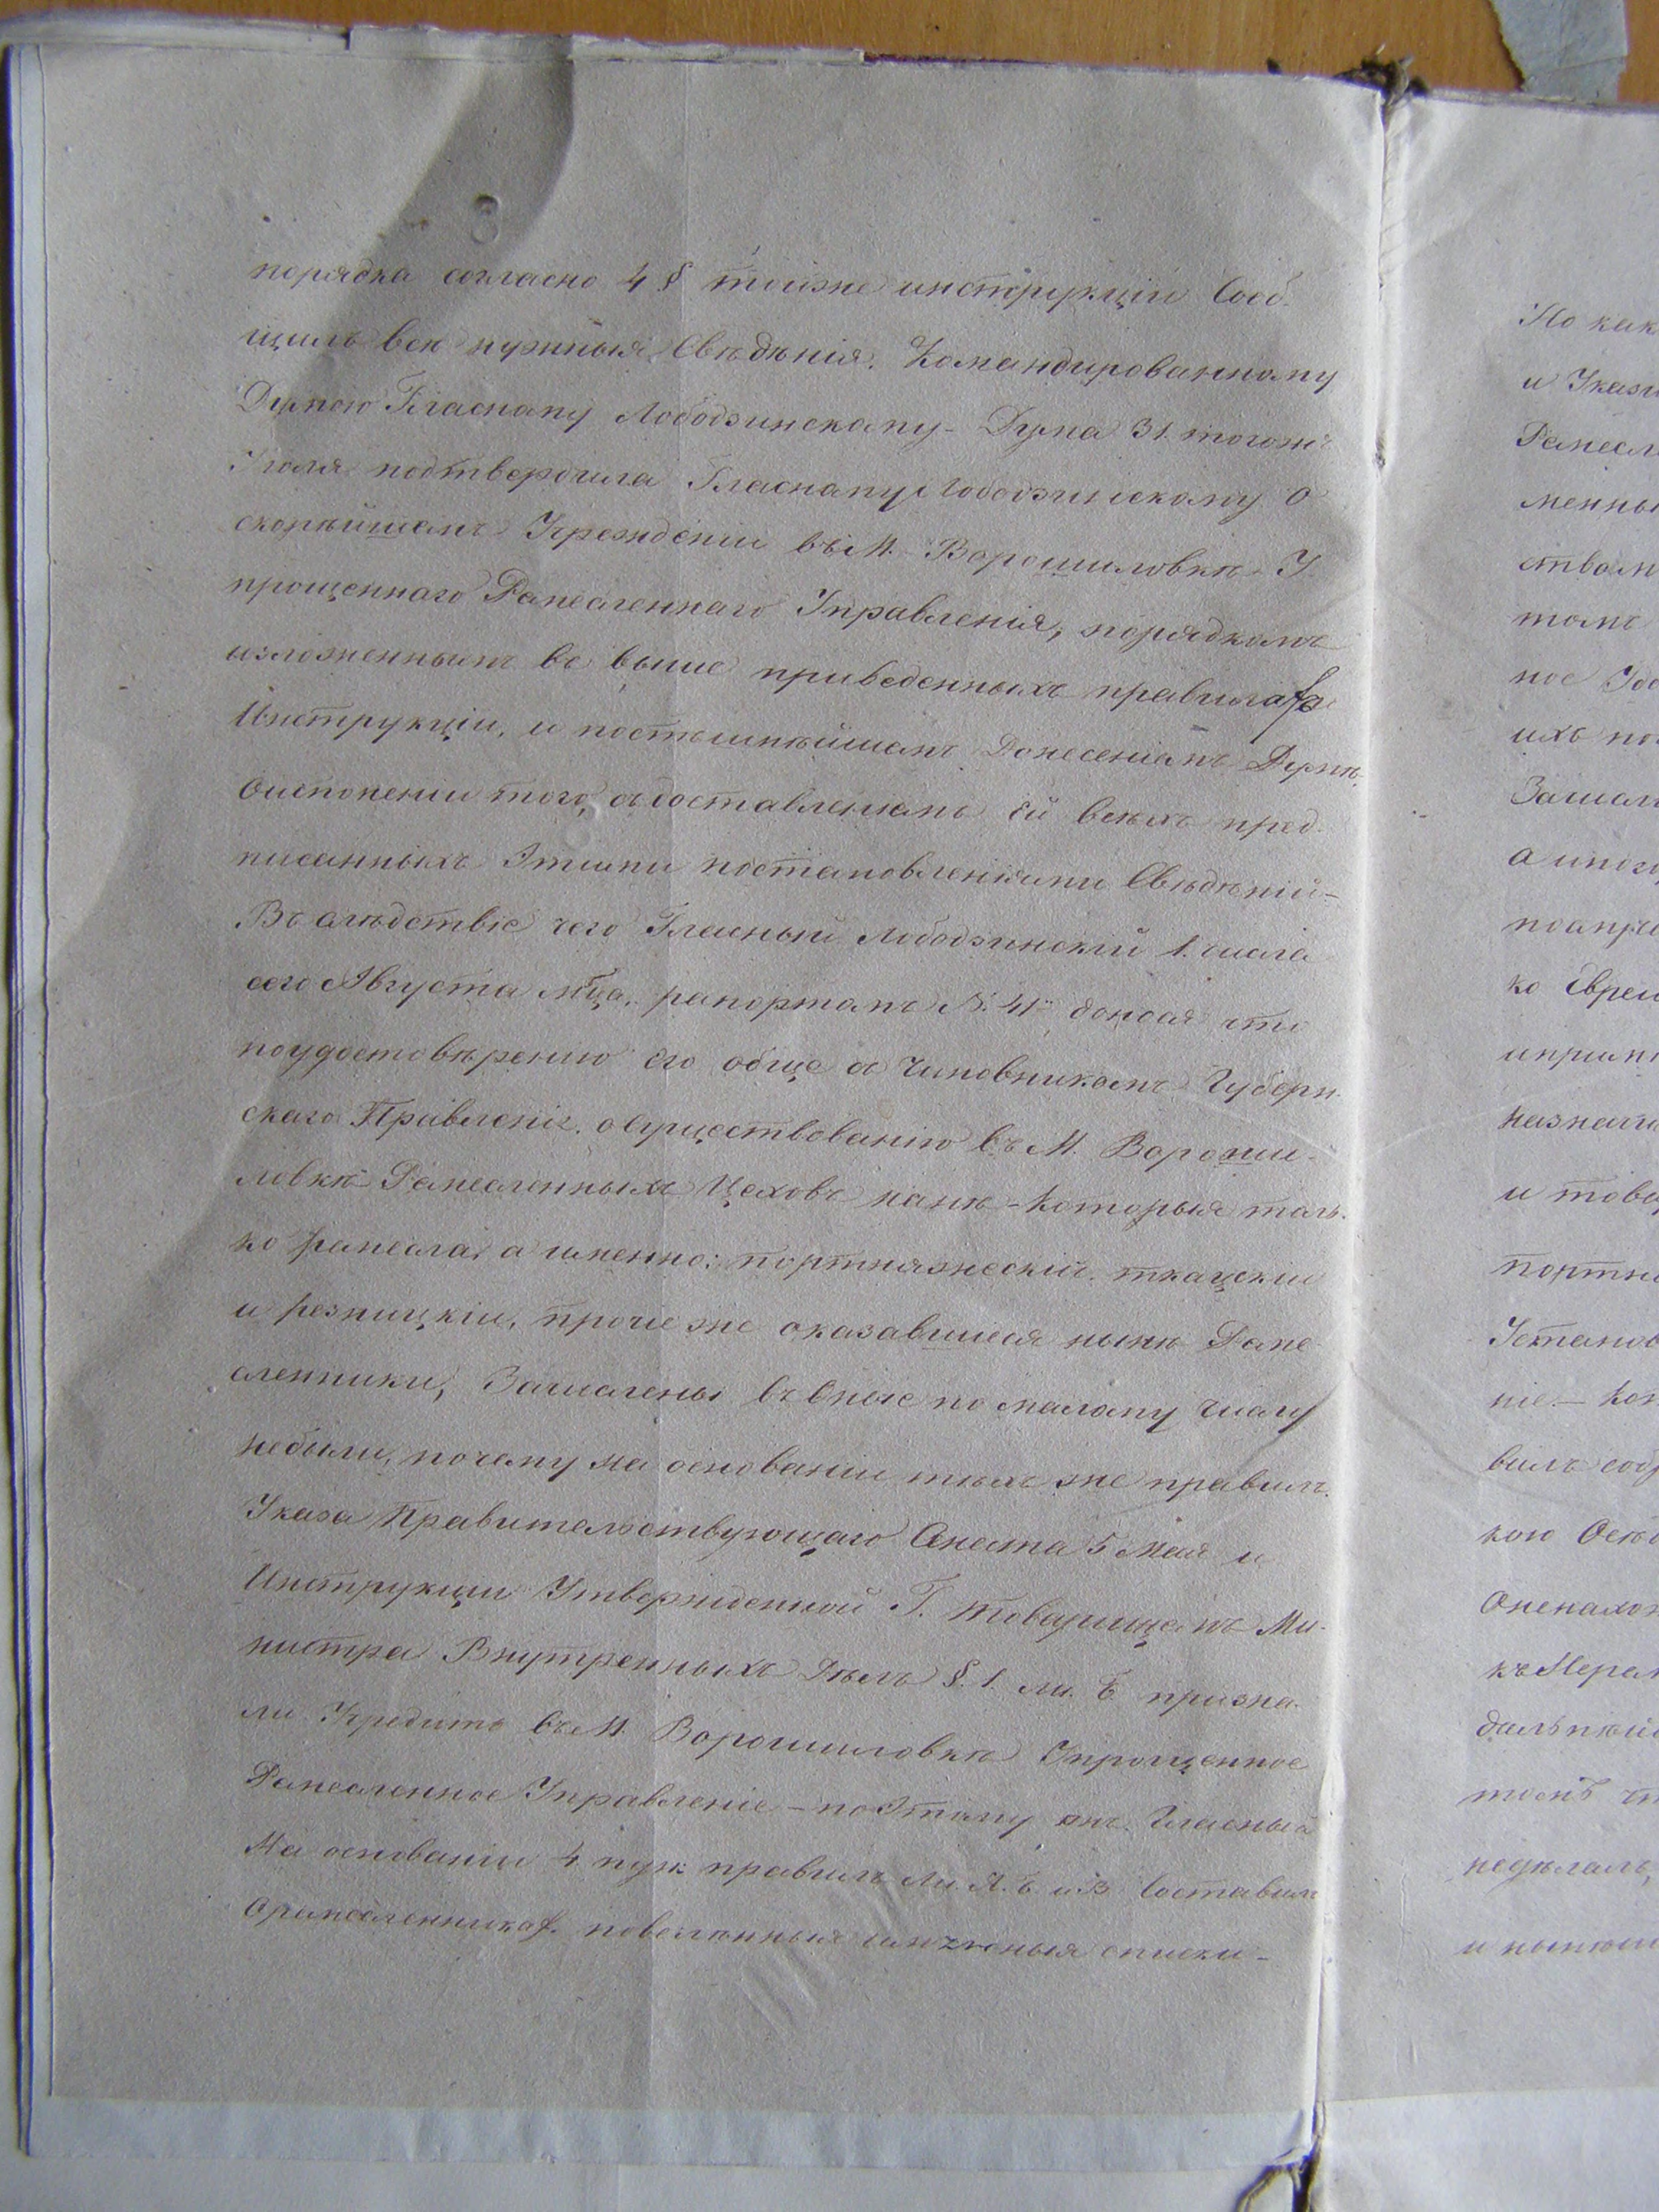 порядка согласно 4 § тойже инструкціи Сооб-
щилъ всѣ нужныя Свѣдѣнія. Командированному
Думою Гласному Лободзинскому - Дума 31. тогожъ
Іюля подтвердила Гласному Лободзинскому о
скорѣйшемъ Учрежденіи въ М. Ворошиловкѣ У
прощеннаго Ремесленнаго Управленія, порядкомъ
изложеннымъ въ выше приведенныхъ правилахъ
Инструкціи, и поспѣшнѣйшемъ Донесеніемъ Думѣ
о исполненіи того, съ доставленіемъ Ей всѣхъ пред
писанныхъ Этими постановленіями Свѣдѣній -
Въ слѣдствіе чего Гласный Лободзинскій 1. числа
сего Августа мца. рапортомъ №. 41 донося что
поудостовѣренію его обще съ Чиновникомъ Губерн
скаго Правленія. осуществованію въ М. Вороши-
ловкѣ Ремесленныхъ Цеховъ которыя толь-
ко ремесла, а именно: портняжескій. ткацкій
и резницкій, прочіе же оказавшіеся нынѣ Реме
сленники, Зачислены въ оные по малому числу
небыли, почему на основаніи тѣхъ же правилъ
Указа Правительствующаго Сената 5 Мая и
Инструкціи Утвержденной Г. товарищемъ Ми-
нистра Внутреннихъ Дѣлъ §. 1. ли. Б призна-
ли Учредить въ М. Ворошиловкѣ Упрощенное
Ремесленное Управленіе - поЭтому онъ. Гласный
На основаніи 4. пун. правилъ Ли. А. Б. и В Составилъ
оремесленникахъ. списки -
Но как
и Указ
Ремесл
менны
ствам
томъ
ное
ихъ по
Зачисл
а
ко Евреи
назнач
и това
портн
Установ
ніе. -
вилъ
кою